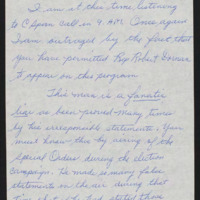 I am at this time, listening
to C Span call in 9 AM. Once again
I am outraged by the fact that
you have permitted Rep Robert Dornan
to appear on this program.
This man is a fanatic
has been proved many times
by his irresponsible statements. You
must know this by airing of the
Special Orders during the election
campaign. He made so many false
statements on the air during that
time that